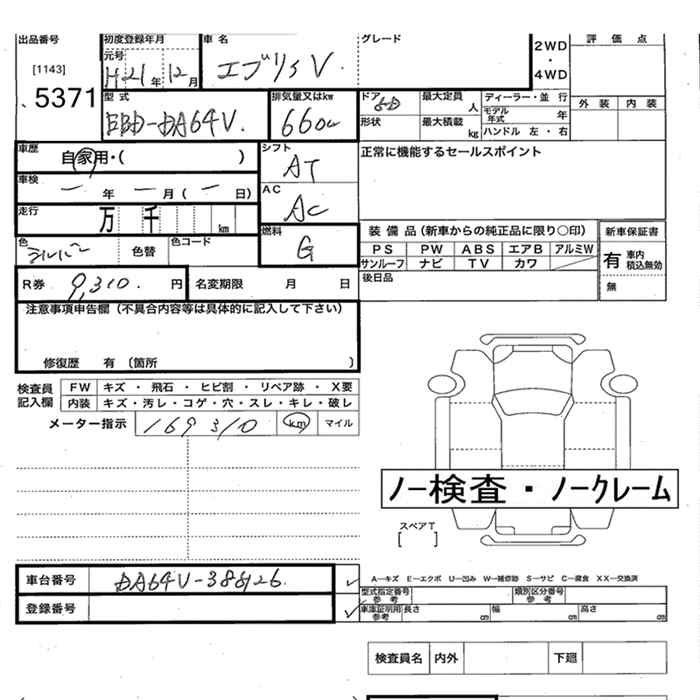 出品番号 初度登録年月 車名 グレード 評価点
元号 2WD・4WD
[1143] H21年12月 エブリィV.
5371
型式 排気量又はkw ドア 最大定員 人 ディーラー・並行 外装 内装
EBD-DA64V. 660cc 5D モデル年式 年
形状 最大積載 kg ハンドル 左・右
車歴 シフト 正常に機能するセールスポイント
自家用・( ) AT
車検 ー年 ー月(ー日) AC
AC
走行 万 千 km
燃料 装備品(新車からの純正品に限り○印) 新車保証書
色 シルバー 色替 色コード G PS PW ABS エアB アルミW 有 車内積込無効
サンルーフ ナビ TV カワ
R券 9,310. 円 名変期限 月 日 後日品 無
注意事項申告欄(不具合内容等は具体的に記入して下さい)
修復歴 有(箇所 )
検査員記入欄 FW キズ・飛石・ヒビ割・リペア跡・X要
内装 キズ・汚レ・コゲ・穴・スレ・キレ・破レ
メーター指示 169310 km マイル
ノー検査・ノークレーム
スペアT
[ ]
車台番号 DA64V-388126. ✓ A―キズ E―エクボ U―凹み W―補修跡 S―サビ C―腐食 XX―交換済
型式指定番号参考 類別区分番号参考
登録番号 ✓ 車庫証明用参考 長さ cm 幅 cm 高さ cm
検査員名 内外 下廻